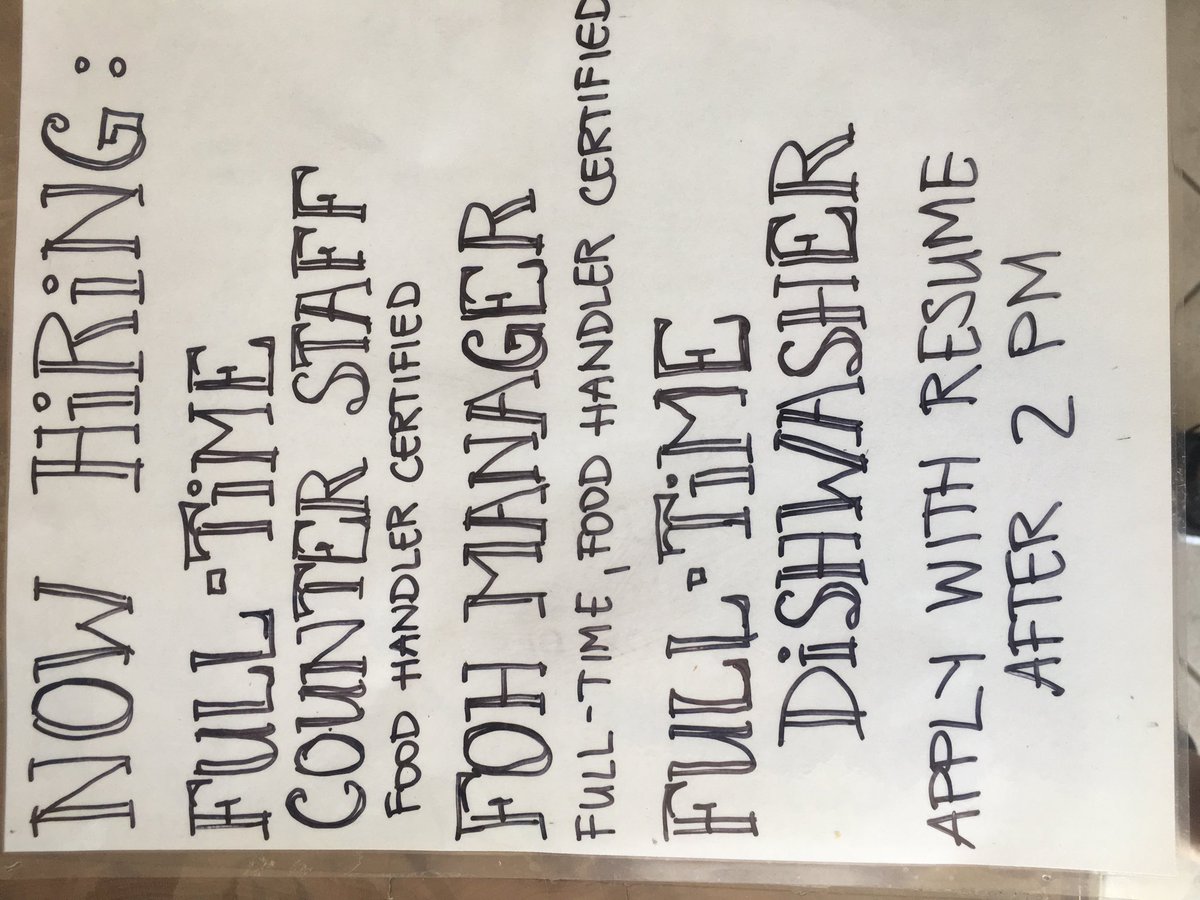 NOW HiRiNG:
FULL-TiME
COUNTER STAFF
FOOD HANDLER CERTIFIED
FOH MANAGER
FULL-TIME, FOOD HANDLER CERTIFIED
FULL-TiME
DiSHWASHER
APPLY WITH RESUME
AFTER 2 PM